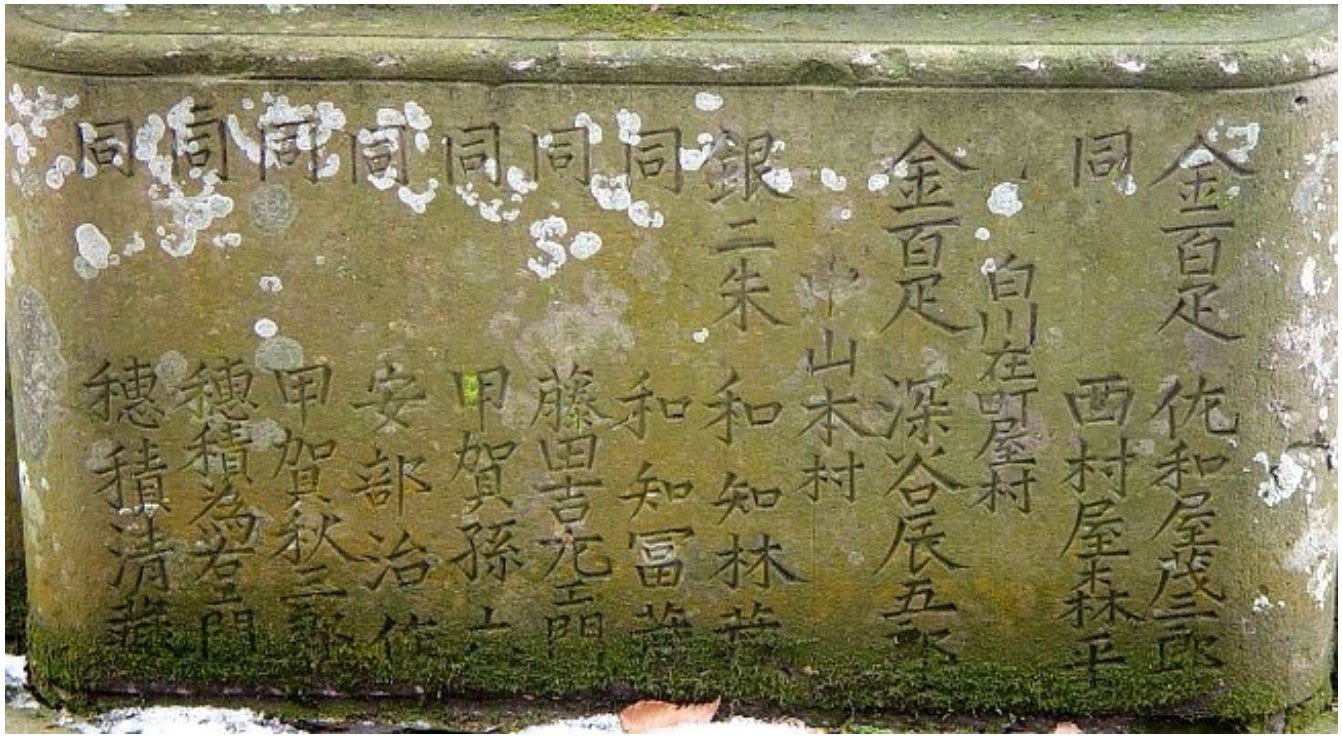 金百疋 佐和屋茂三郎
同 西村屋森平
白川在町屋村
金百疋 深谷辰五郎
山本村
銀二朱 和知林
同 和知冨
同 藤田吉左エ門
同 甲賀孫
同 安部治作
同 甲賀秋三郎
同 穗積為右エ門
同 穗積清